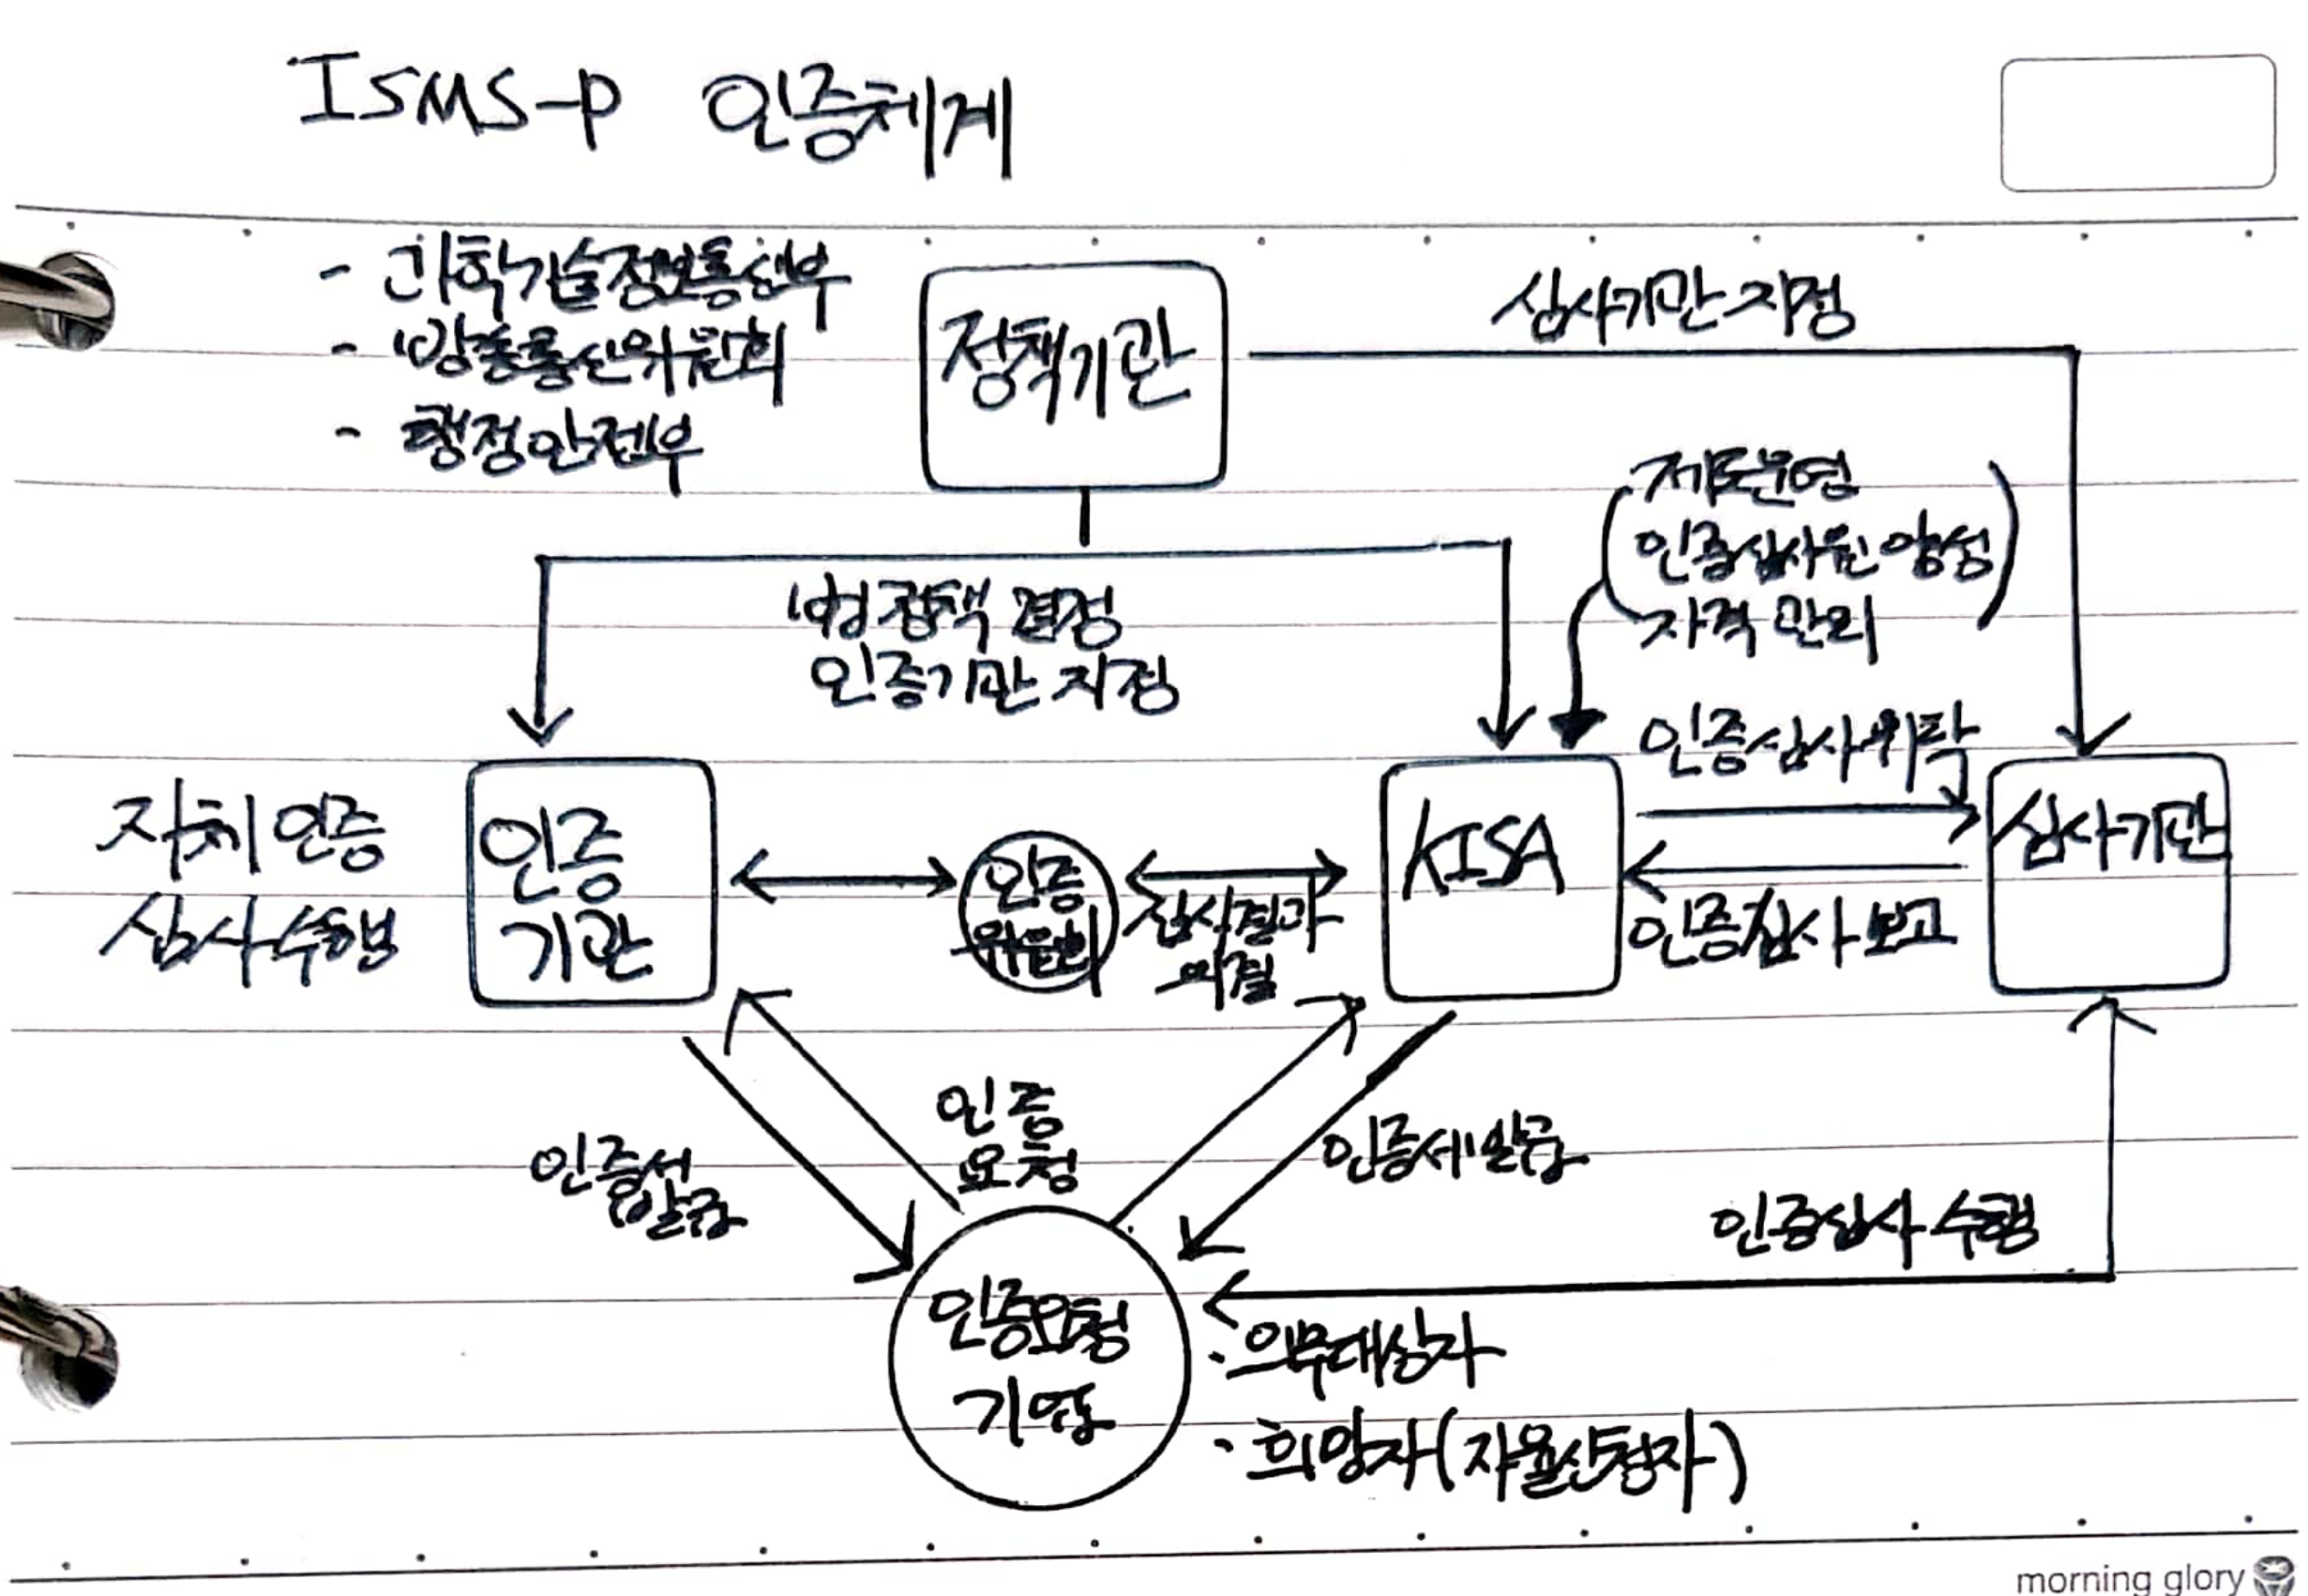 ISMS-P 인증체계
- 과학기술정보통신부
- 방송통신위원회
- 행정안전부
정책기관
심사기관 지정
제도운영
인증심사원 양성
자격 관리
법 정책 결정
인증기관 지정
자체 인증
심사 수행
인증
기관
인증
위원회
심사결과
의결
KISA
인증심사 위탁
인증심사 보고
심사기관
인증서
발급
인증
요청
인증서 발급
인증심사 수행
인증요청
기업
· 의무대상자
· 희망자(자율신청자)
morning glory